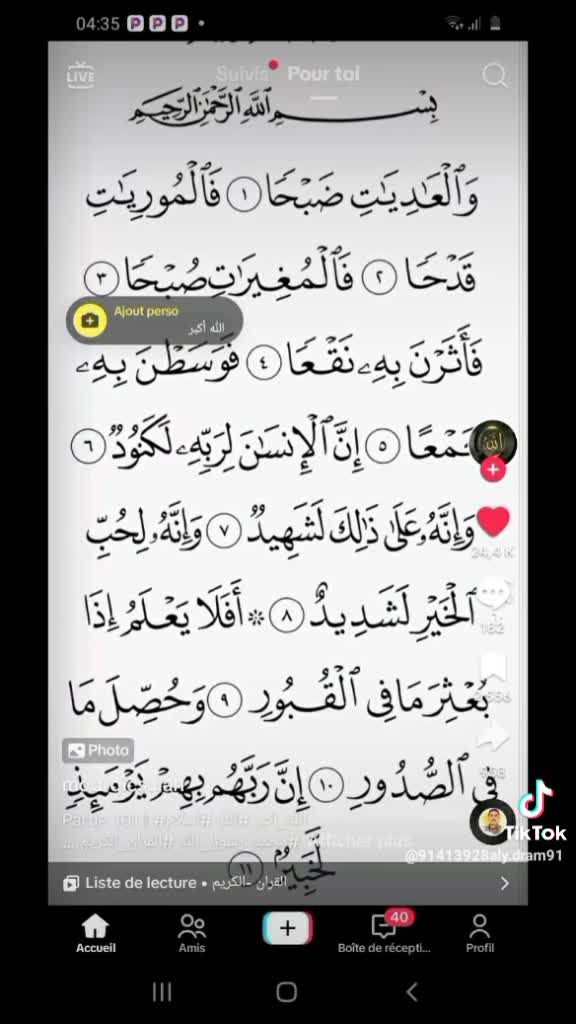 04:35
LIVE
Suivis Pour toi
بِسْمِ ٱللَّهِ ٱلرَّحْمَٰنِ ٱلرَّحِيمِ
وَٱلْعَٰدِيَٰتِ ضَبْحًا ١ فَٱلْمُورِيَٰتِ
قَدْحًا ٢ فَٱلْمُغِيرَٰتِ صُبْحًا ٣
Ajout perso
الله أكبر
فَأَثَرْنَ بِهِۦ نَقْعًا ٤ فَوَسَطْنَ بِهِۦ
جَمْعًا ٥ إِنَّ ٱلْإِنسَٰنَ لِرَبِّهِۦ لَكَنُودٌ ٦
وَإِنَّهُۥ عَلَىٰ ذَٰلِكَ لَشَهِيدٌ ٧ وَإِنَّهُۥ لِحُبِّ
24,4 K
ٱلْخَيْرِ لَشَدِيدٌ ٨ ۞ أَفَلَا يَعْلَمُ إِذَا
182
بُعْثِرَ مَا فِى ٱلْقُبُورِ ٩ وَحُصِّلَ مَا
Photo
فِى ٱلصُّدُورِ ١٠ إِنَّ رَبَّهُم بِهِمْ يَوْمَئِذٍ
TikTok
@91413928aly.dram91
لَّخَبِيرٌۢ ١١
Liste de lecture • القران -الكريم
40
Accueil Amis Boîte de récepti... Profil